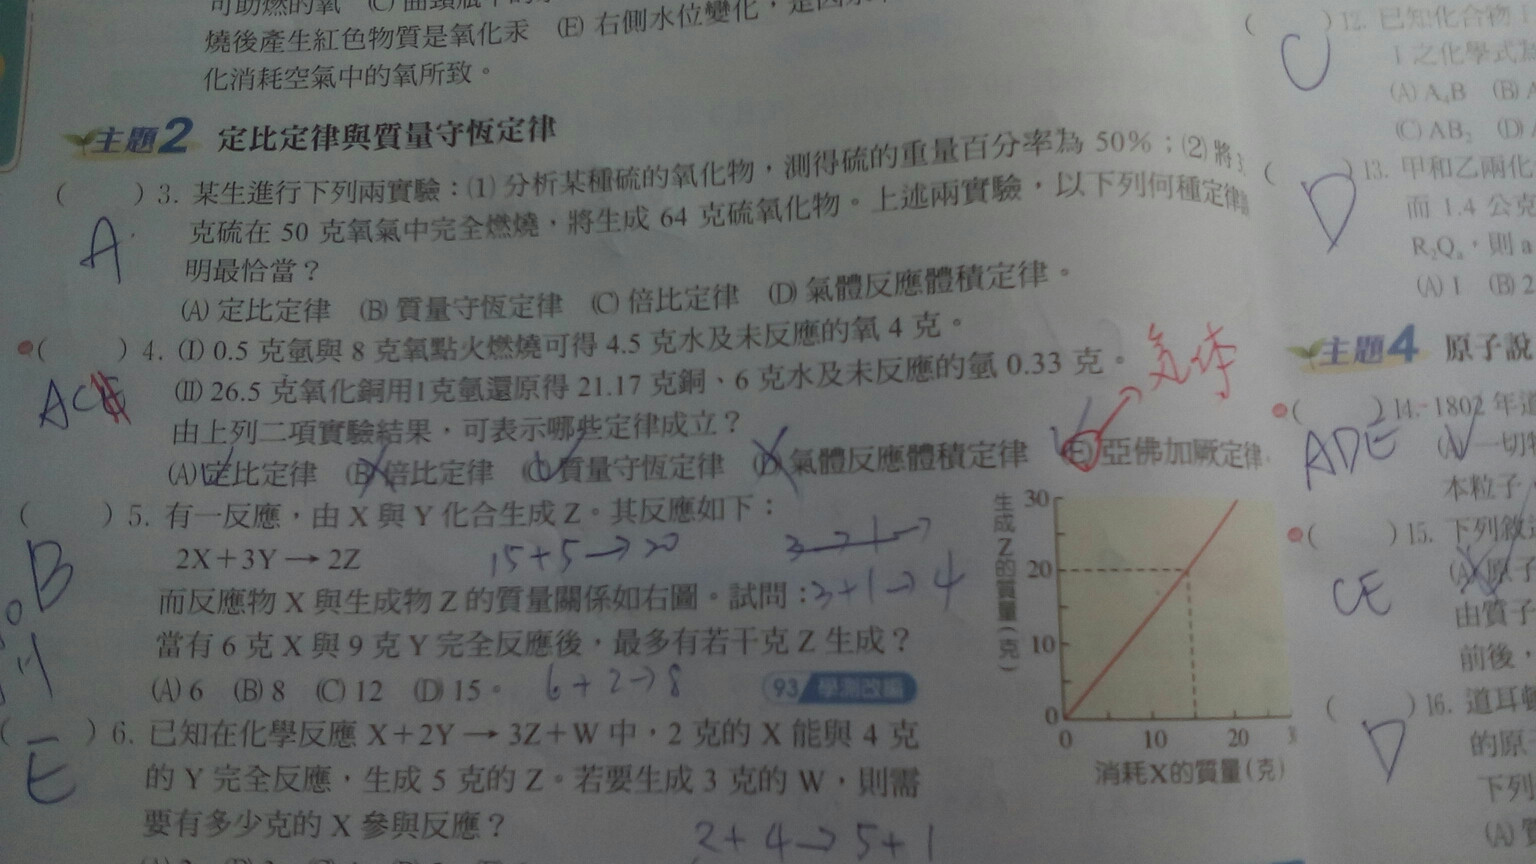 可助燃的氧 (C)曲頸瓶中的
燒後產生紅色物質是氧化汞 (E)右側水位變化,是因
化消耗空氣中的氧所致。
主題2 定比定律與質量守恆定律
( )3. 某生進行下列兩實驗:(1)分析某種硫的氧化物,測得硫的重量百分率為50%;(2)將
克硫在50克氧氣中完全燃燒,將生成64克硫氧化物。上述兩實驗,以下列何種定律
明最恰當?
A
(A)定比定律 (B)質量守恆定律 (C)倍比定律 (D)氣體反應體積定律。
( )4. (I)0.5克氫與8克氧點火燃燒可得4.5克水及未反應的氧4克。
(II)26.5克氧化銅用1克氫還原得21.17克銅、6克水及未反應的氫0.33克。
氣体
AC
由上列二項實驗結果,可表示哪些定律成立?
(A)定比定律 (B)倍比定律 (C)質量守恆定律 (D)氣體反應體積定律 (E)亞佛加厥定律
( )5. 有一反應,由X與Y化合生成Z。其反應如下:
2X+3Y→2Z
15+5→20
B
而反應物X與生成物Z的質量關係如右圖。試問:
3+1→4
當有6克X與9克Y完全反應後,最多有若干克Z生成?
(A)6 (B)8 (C)12 (D)15。
6+2→8
93 學測改編
生成Z的質量(克)
30
20
10
0
0 10 20
消耗X的質量(克)
( )6. 已知在化學反應X+2Y→3Z+W中,2克的X能與4克
E
的Y完全反應,生成5克的Z。若要生成3克的W,則需
要有多少克的X參與反應?
2+4→5+1
( )12. 已知化合物
I之化學式為
(A)A₄B (B)A
(C)AB₂ (D)
( )13. 甲和乙兩化
D
而1.4公克
R₂Qₐ,則a
(A)1 (B)2
主題4 原子說
( )14. 1802年道
ADE
(A)一切
本粒子
( )15. 下列敘
(A)原子
CE
由質子
前後,
( )16. 道耳
D
的原
下列
(A)